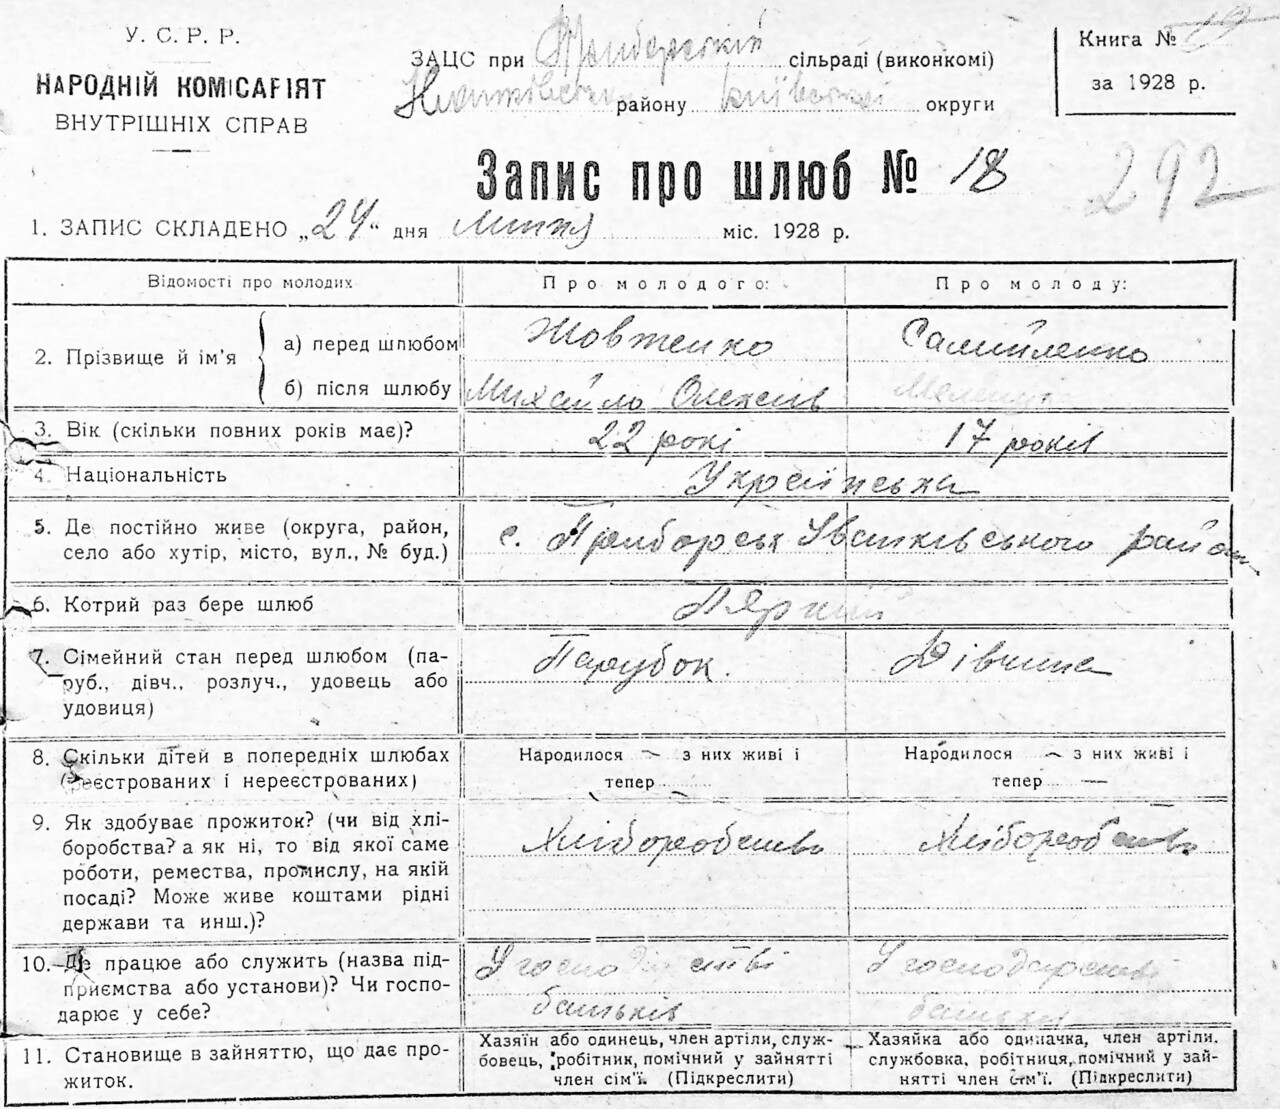 У. С. Р. Р.
НАРОДНІЙ КОМІСАРІЯТ
ВНУТРІШНІХ СПРАВ
ЗАЦС при Приборській сільраді (виконкомі)
району Київської округи
Книга № 19
за 1928 р.
Запис про шлюб № 18
292
1. ЗАПИС СКЛАДЕНО „24" дня липня міс. 1928 р.
Відомості про молодих
Про молодого:
Про молоду:
2. Прізвище й ім'я
а) перед шлюбом
б) після шлюбу
Жовженко
Самійленко
Михайло Олексіїв
3. Вік (скільки повних років має)?
22 рокі
17 років
4. Національність
Українська
5. Де постійно живе (округа, район,
село або хутір, місто, вул., № буд.)
с. Приборськ Іванківського район
6. Котрий раз бере шлюб
7. Сімейний стан перед шлюбом (па-
руб., дівч., розлуч., удовець або
удовиця)
Парубок.
Дівчина
8. Скільки дітей в попередніх шлюбах
(реєстрованих і нереєстрованих)
Народилося — з них живі і
тепер
Народилося — з них живі і
тепер —
9. Як здобуває прожиток? (чи від хлі-
боробства? а як ні, то від якої саме
роботи, ремества, промислу, на якій
посаді? Може живе коштами рідні
держави та инш.)?
Хліборобство
Хліборобство
10. Де працює або служить (назва під-
приємства або установи)? Чи госпо-
дарює у себе?
У господарстві
батьків
У господарстві
батьків
11. Становище в зайняттю, що дає про-
житок.
Хазяїн або одинець, член артілі, служ-
бовець, робітник, помічний у зайнятті
член сім'ї. (Підкреслити)
Хазяйка або одиначка, член артіли.
службовка, робітниця, помічний у зай-
нятті член сім'ї. (Підкреслити)